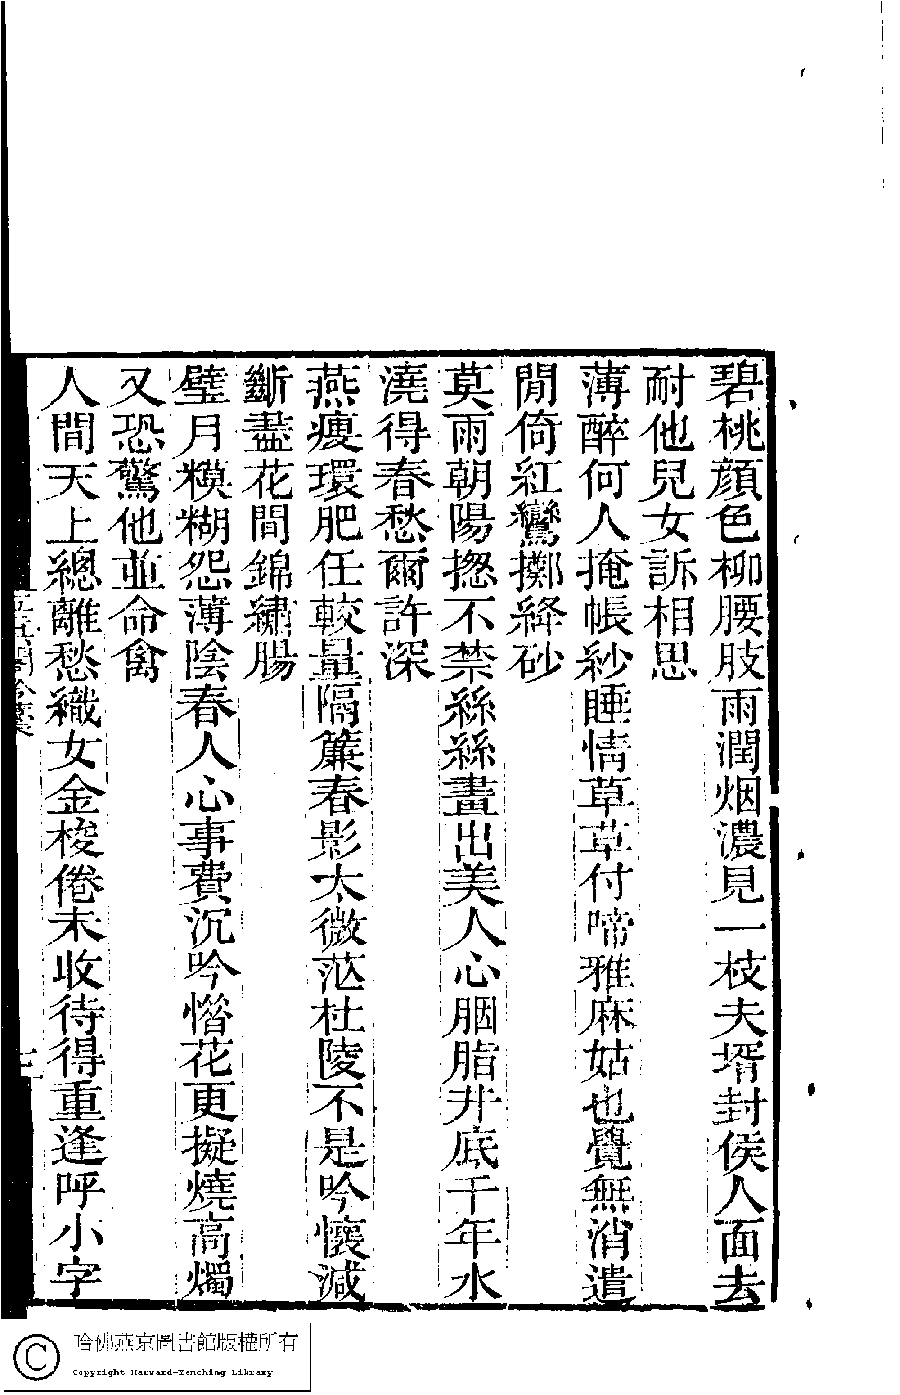 碧桃顔色柳腰肢雨潤烟濃見一枝夫壻封侯人面去
耐他兒女訴相思
薄醉何人掩帳紗睡情草草付啼雅麻姑也覺無消遣
閒倚紅鸞擲絳砂
莫雨朝陽揔不禁絲絲畫出美人心胭脂井底千年水
澆得春愁爾許深
燕瘦環肥任較量隔簾春影太微茫杜陵不是吟懷減
斷盡花間錦繡腸
璧月糢糊怨薄陰春人心事費沉吟惜花更擬燒高燭
又恐驚他並命禽
人間天上總離愁織女金梭倦未收待得重逢呼小字
哈佛燕京圖書館版權所有
Copyright Harvard-Yenching Library